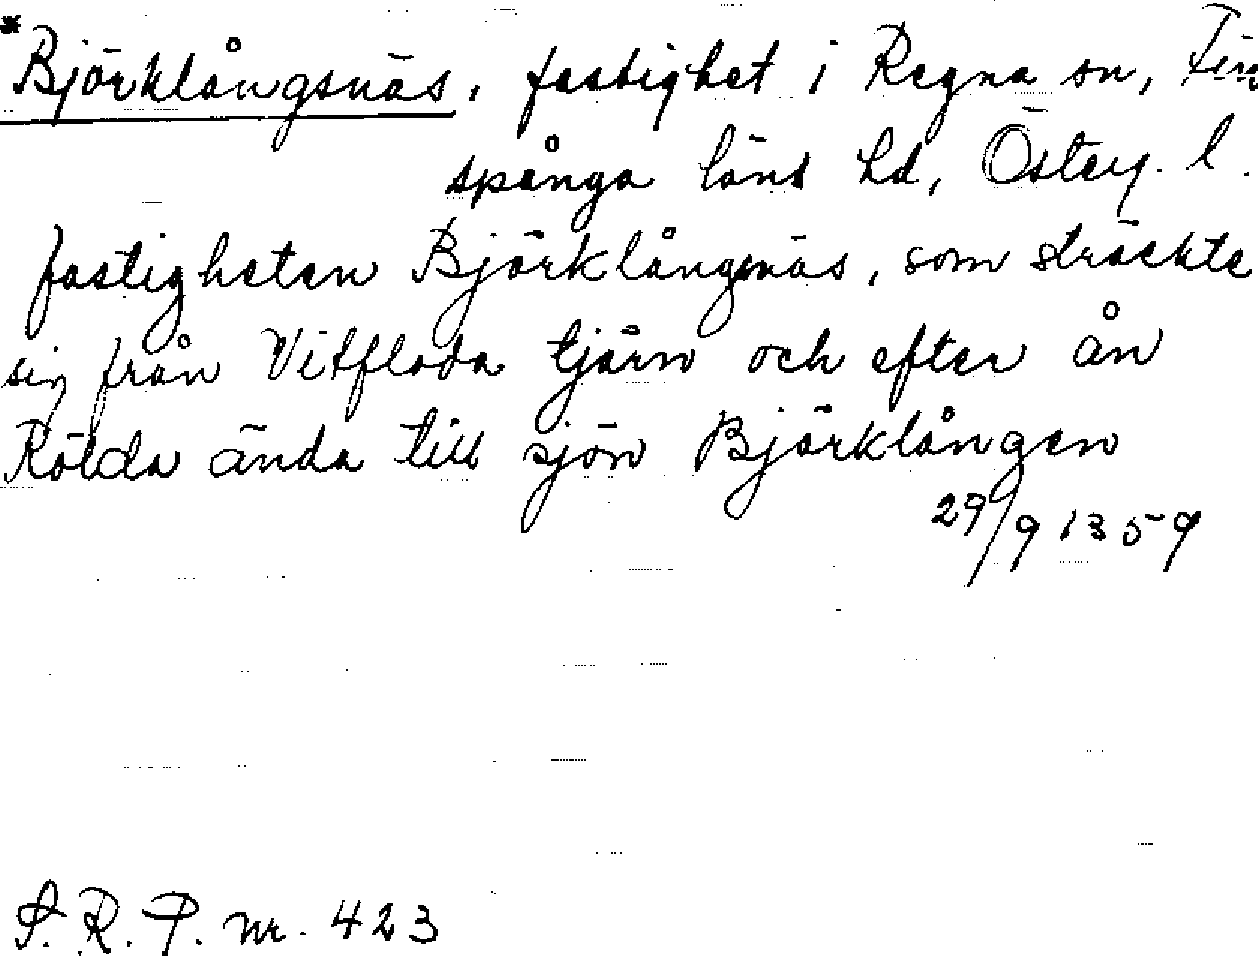 *Björklångsnäs, fastighet i Regna sn, Fin
spånga läns hd, Österg. l.
fastigheten Björklångsnäs, som sträckte
sig från Vitfloda tjärn och efter ån
Rölda ända till sjön Björklången
29/9 1359
S.R.P. nr. 423